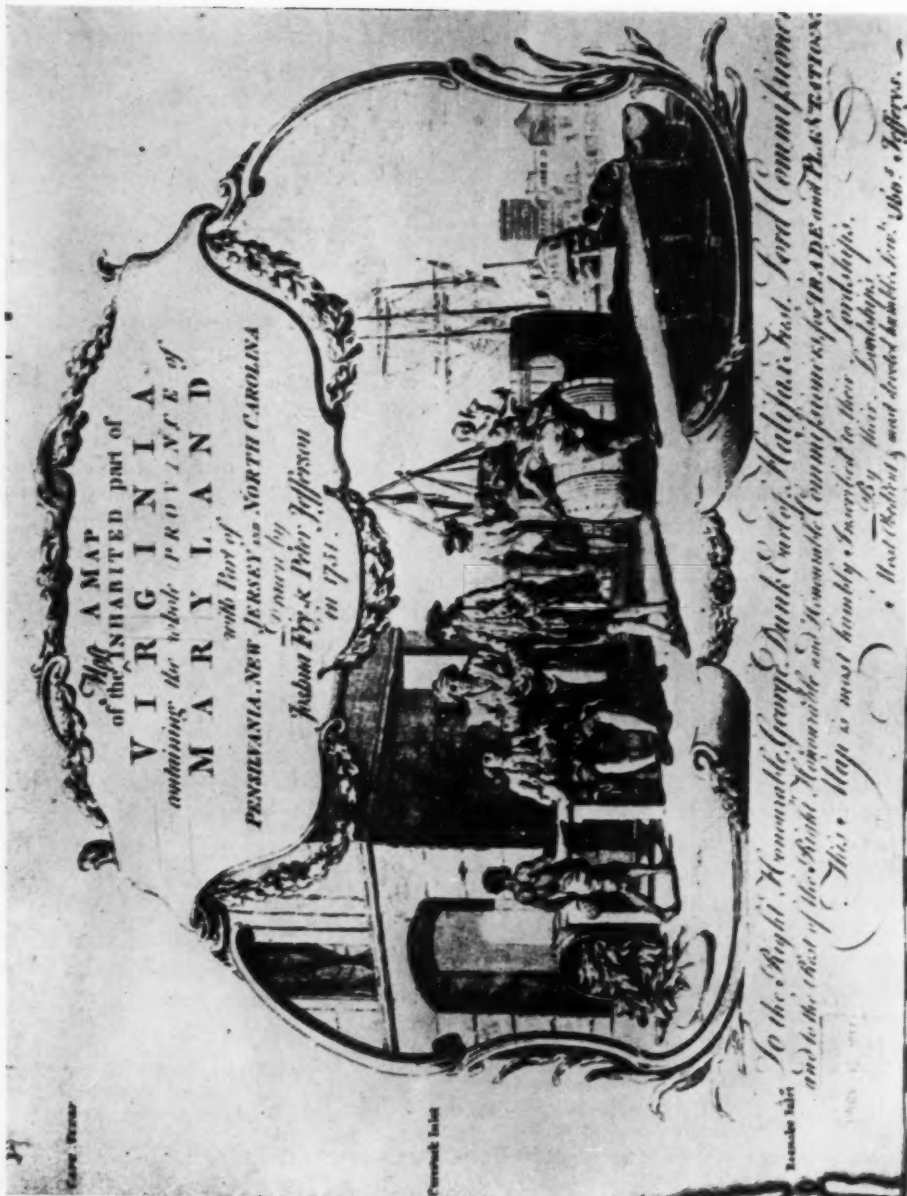 A MAP
of the Most INHABITED part of
VIRGINIA
containing the whole PROVINCE of
MARYLAND
with Part of
PENSILVANIA, NEW JERSEY AND NORTH CAROLINA
Drawn by
Joshua Fry & Peter Jefferson
in 1751.
To the Right Honourable, George Dunk Earl of Halifax First Lord Commissioner
and to the Rest of the Right Honourable and Honourable Commissioners, for TRADE and PLANTATIONS,
This Map is most humbly Inscribed to their Lordships,
By their Lordship's
Most Obedient & most devoted humble Servt. Thos. Jefferys.
CAPE FEEAR
Currituck Inlet
Roanoke Inlet